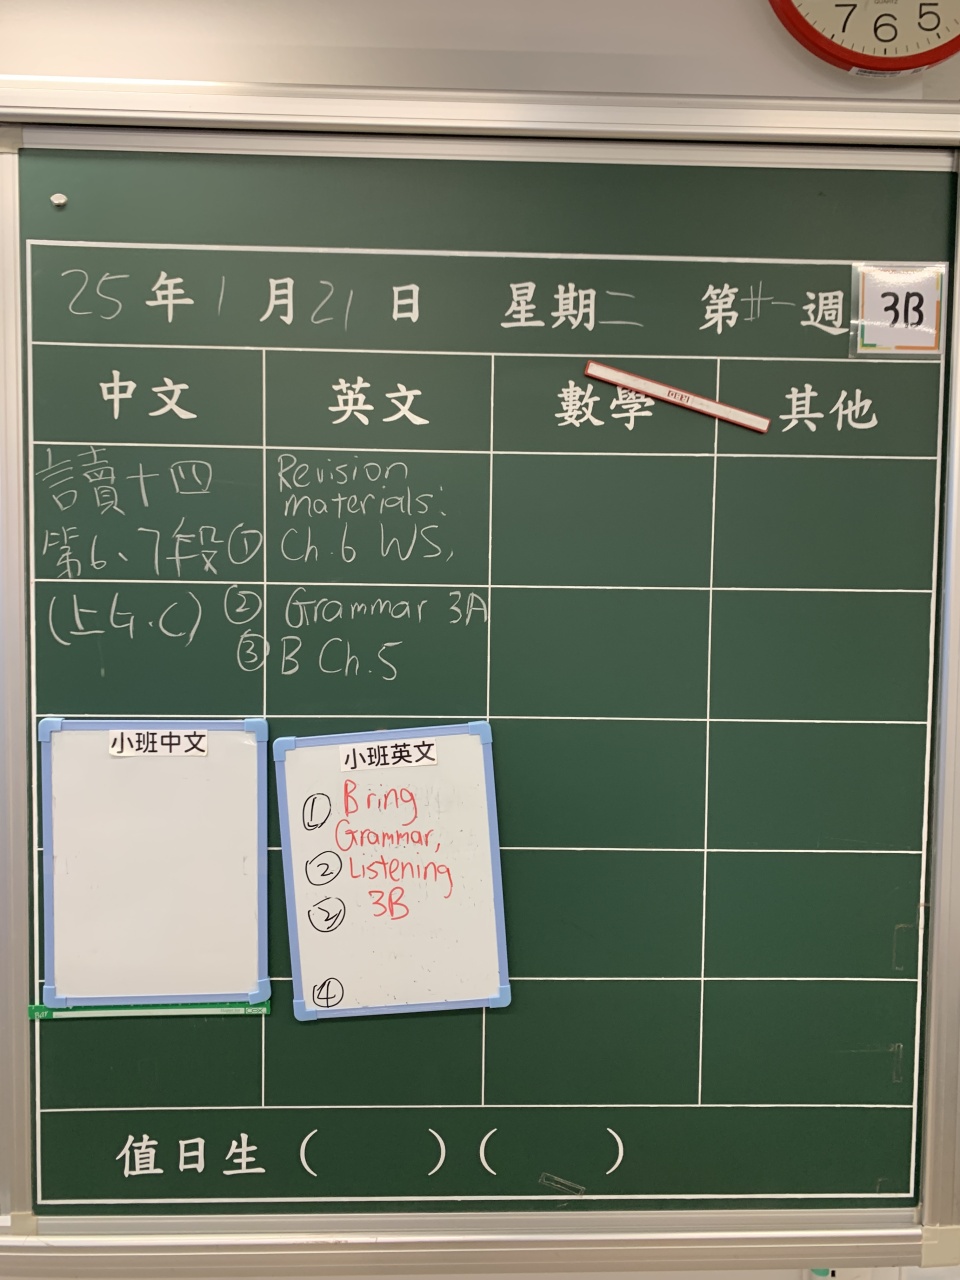 7 6 5
25年1月21日 星期二 第廿一週 3B
中文 英文 數學 其他
讀十四
第6、7段①
(上G.C) ②
③
Revision
materials:
Ch.6 WS,
Grammar 3A
B Ch.5
小班中文
小班英文
① Bring
Grammar,
② Listening
③ 3B
④
值日生 ( ) ( )